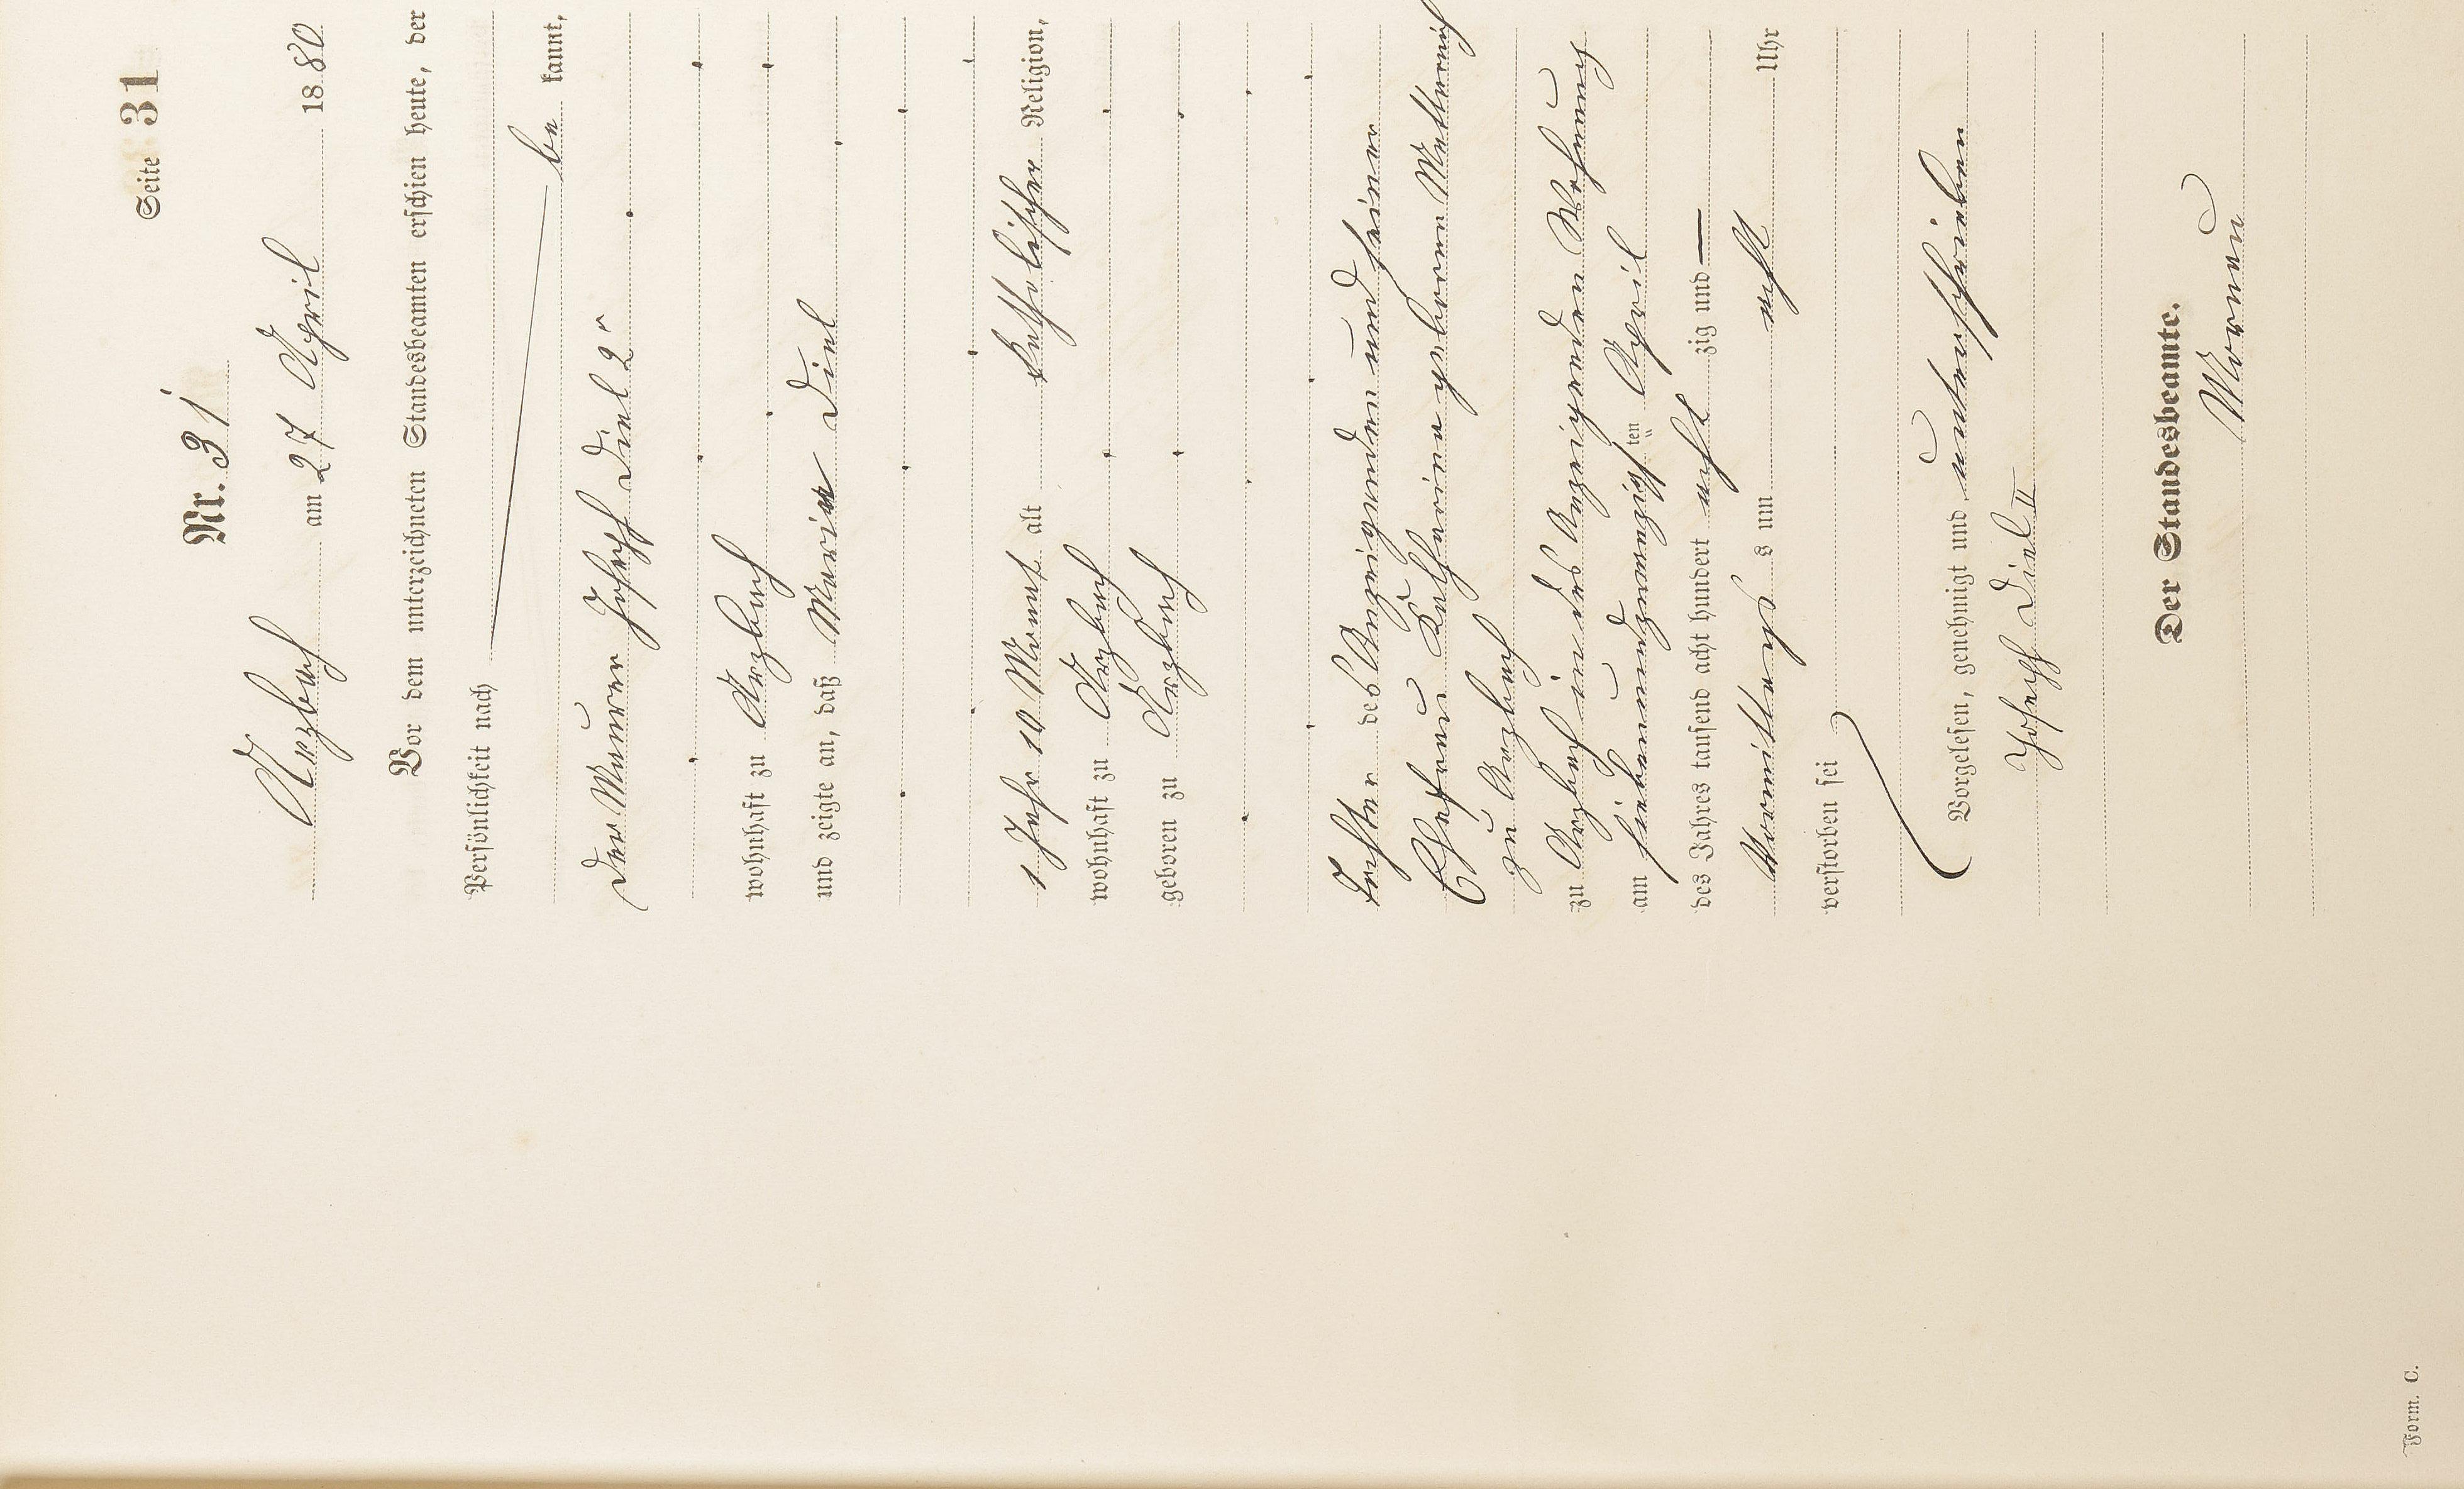 Seite 31
Nr. 31
Arzbach am 27 April 1880
Vor dem unterzeichneten Standesbeamten erschien heute, der
Persönlichkeit nach
be kannt,
der Maurer Joseph Diel 2r
wohnhaft zu Arzbach
und zeigte an, daß Maria Diel
1 Jahr 10 Monat alt katholischer Religion,
wohnhaft zu Arzbach
geboren zu Arzbach
Tochter des Anzeigenden und seiner
Ehefrau Katharina geborenen Metternich
zu Arzbach
zu Arzbach in des Anzeigenden Wohnung
am siebenundzwanzigsten April
des Jahres tausend acht hundert acht zig und
Vormittags s um acht Uhr
verstorben sei
Vorgelesen, genehmigt und unterschrieben
Joseph Diel II
Der Standesbeamte.
Form. C.